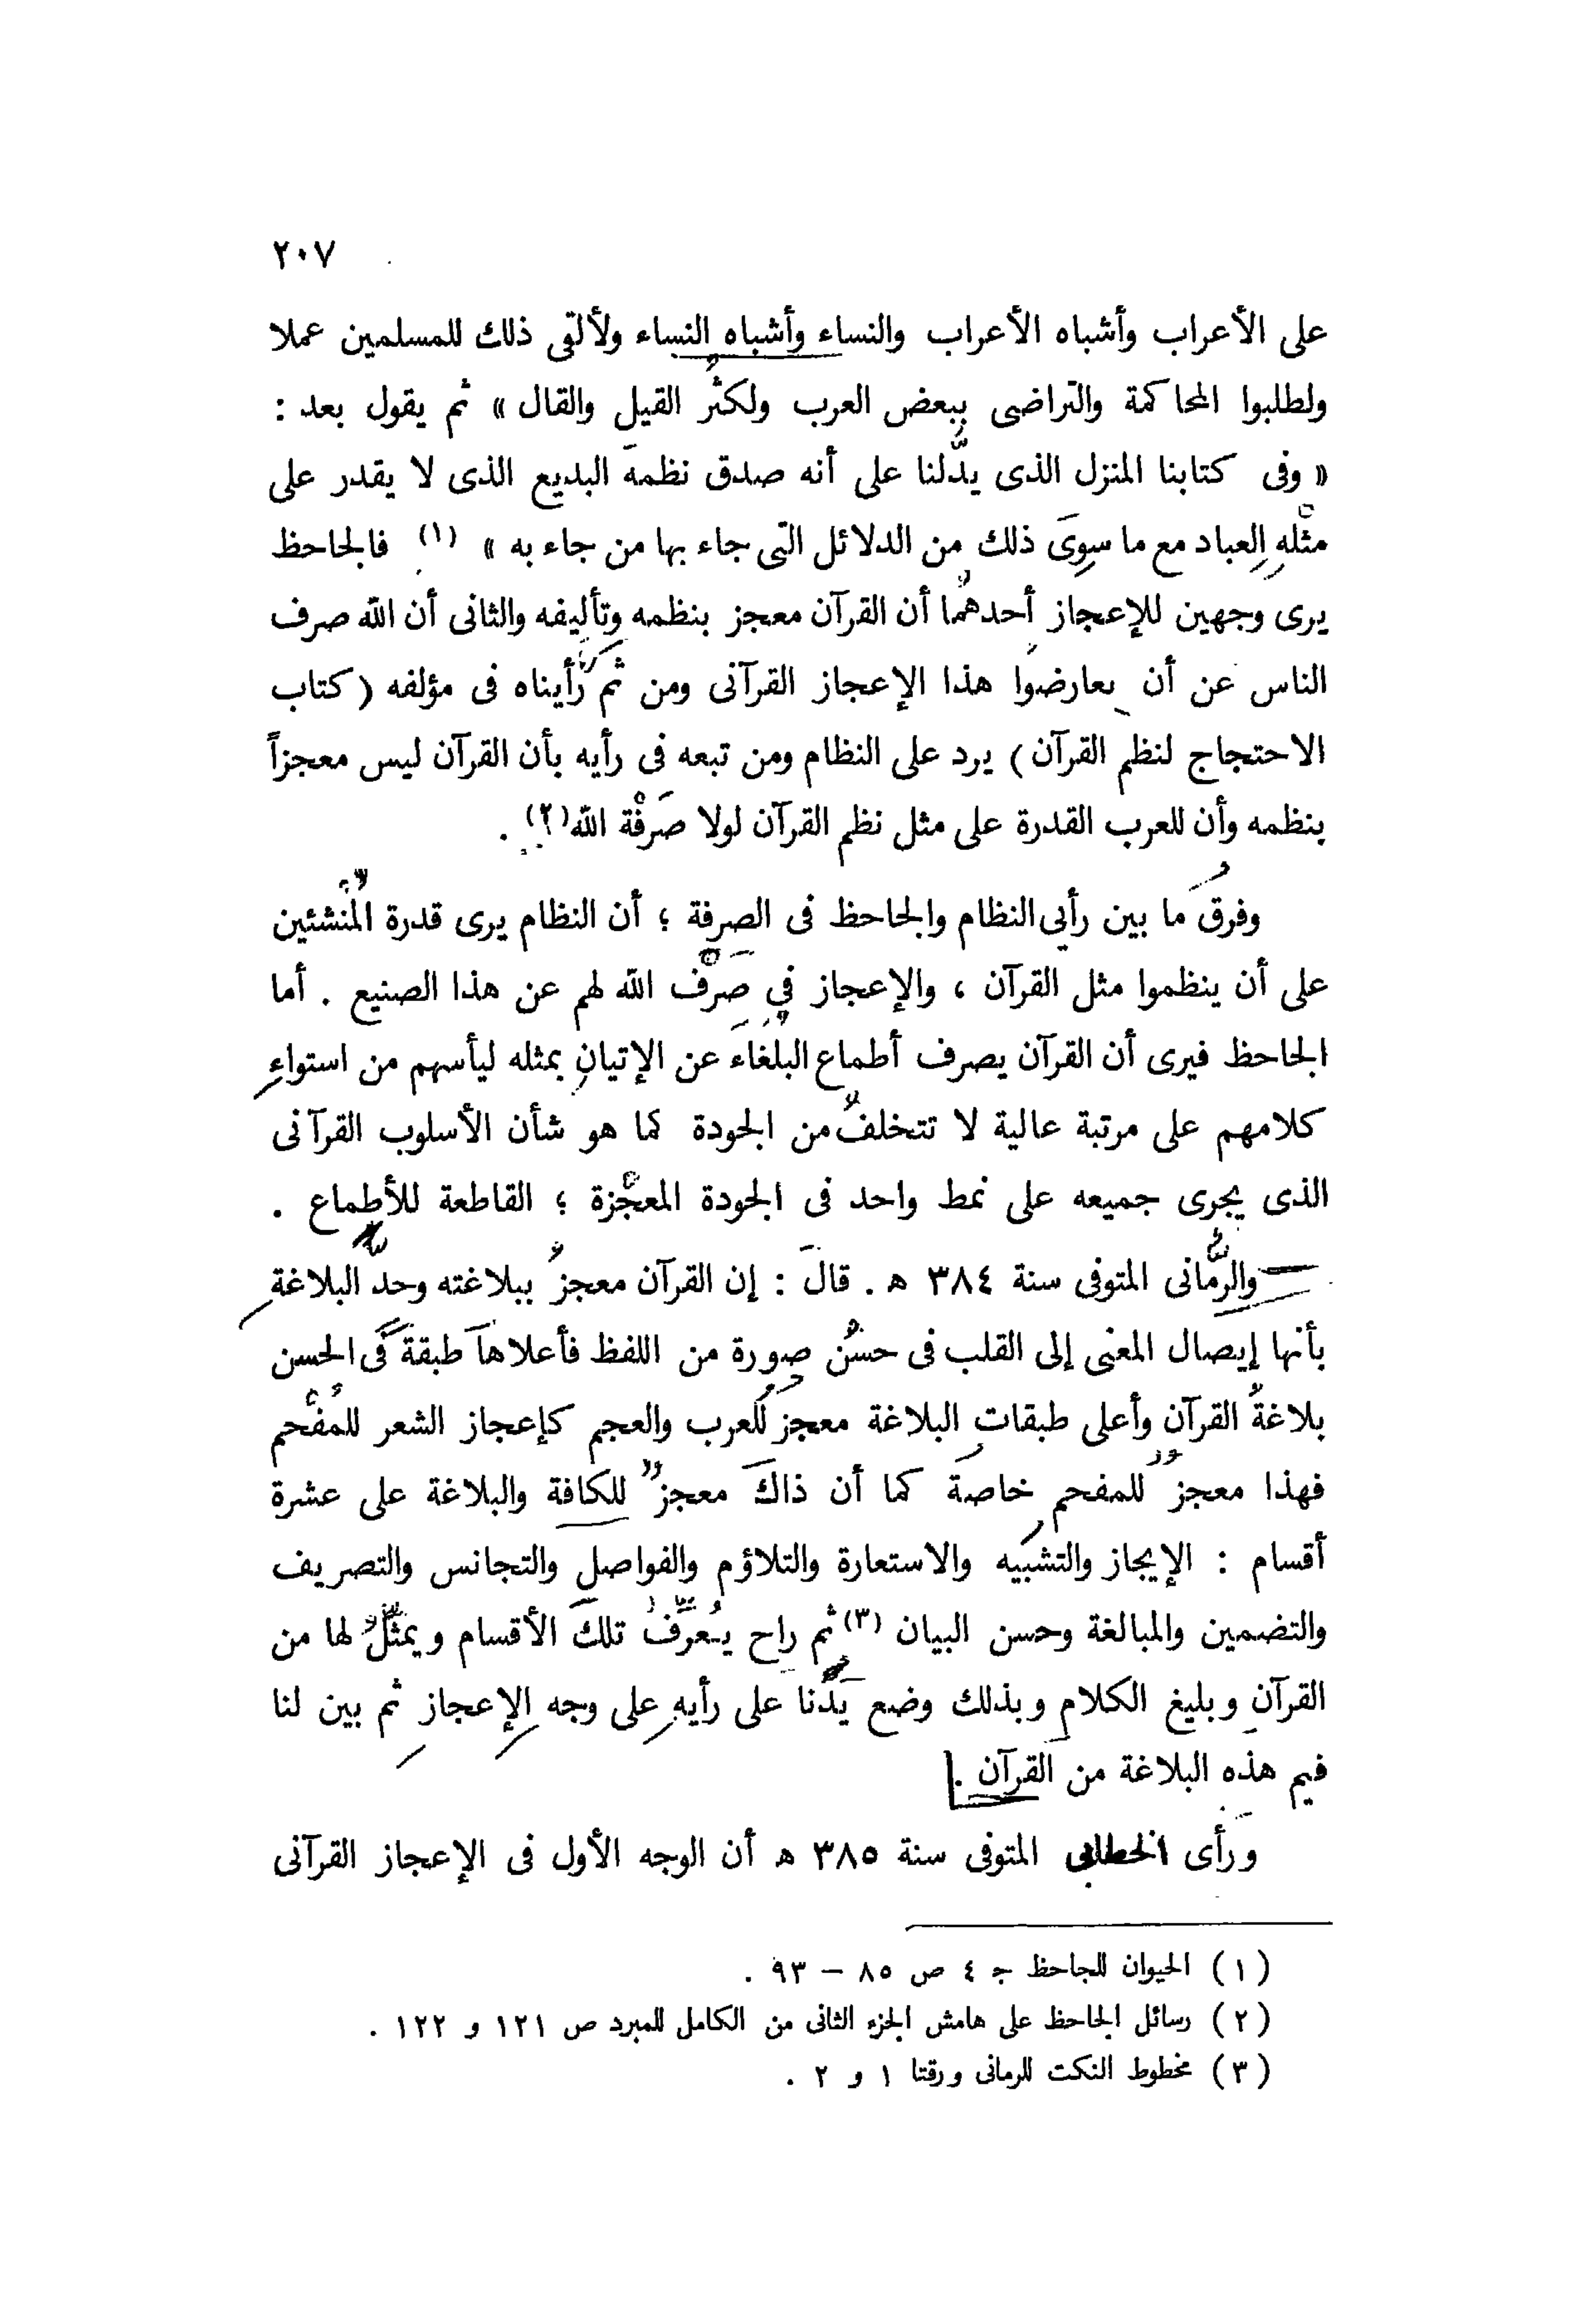 ٢٠٧
على الأعراب وأشباه الأعراب والنساء وأشباه النساء ولألقى ذلك للمسلمين عملا
ولطلبوا المحاكمة والتراضى ببعض العرب ولكثُر القيل والقال » ثم يقول بعد :
« وفى كتابنا المنزل الذى يدّلنا على أنه صدق نظمهَ البديع الذى لا يقدر على
مثْلهِ العباد مع ما سوِىَ ذلك من الدلائل التى جاء بها من جاء به » (١) فالجاحظ
يرى وجهين للإعجاز أحدهُما أن القرآن معجز بنظمه وتأليفه والثانى أن الله صرف
الناس عن أن يعارضوا هذا الإعجاز القرآنى ومن ثَم رأيناه فى مؤلفه ( كتاب
الاحتجاج لنظم القرآن ) يرد على النظام ومن تبعه فى رأيه بأن القرآن ليس معجزاً
بنظمه وأن للعرب القدرة على مثل نظم القرآن لولا صَرفْة الله(٢) .
وفرقُ ما بين رأيى النظام والجاحظ فى الصرفة ؛ أن النظام يرى قدرة المُنشئين
على أن ينظموا مثل القرآن ، والإعجاز في صَرْف الله لهم عن هذا الصنيع . أما
الجاحظ فيرى أن القرآن يصرف أطماع البلُغاءَ عن الإتيانِ بمثله ليأسهم من استواءِ
كلامهم على مرتبة عالية لا تتخلفُ من الجودة كما هو شأن الأسلوب القرآنى
الذى يجرى جميعه على نمط واحد فى الجودة المعجْزة ؛ القاطعة للأطماع .
والرُّمانى المتوفى سنة ٣٨٤ ه . قالَ : إن القرآن معجزُ ببلاغته وحدَّ البلاغةِ
بأنها إيصال المعنى إلى القلب فى حسُن صورة من اللفظ فأعلاهاَ طبقةَ فى الحسن
بلاغةُ القرآن وأعلى طبقات البلاغة معجز للَعرب والعجم كإعجاز الشعر للمُفْحم
فهذا معجزٌ للمفحم خاصةَ كما أن ذاكَ معجزٌ للكافة والبلاغة على عشرة
أقسام : الإيجاز والتشبَيه والاستعارة والتلاؤم والفواصل والتجانس والتصريف
والتضمين والمبالغة وحسن البيان (٣) ثم راح يُعرِّفُ تلكَ الأقسام ويمثّلُ لها من
القرآن وبليغ الكلام وبذلك وضع يَدَنا على رأيهِ على وجه الإعجازِ ثم بين لنا
فيم هذه البلاغة من القرآن .
ورأى الخطابى المتوفى سنة ٣٨٥ ه أن الوجه الأول فى الإعجاز القرآنى
(١) الحيوان للجاحظ ج ٤ ص ٨٥ – ٩٣ .
(٢) رسائل الجاحظ على هامش الجزء الثانى من الكامل للمبرد ص ١٢١ و ١٢٢ .
(٣) مخطوط النكت للرمانى ورقتا ١ و ٢ .